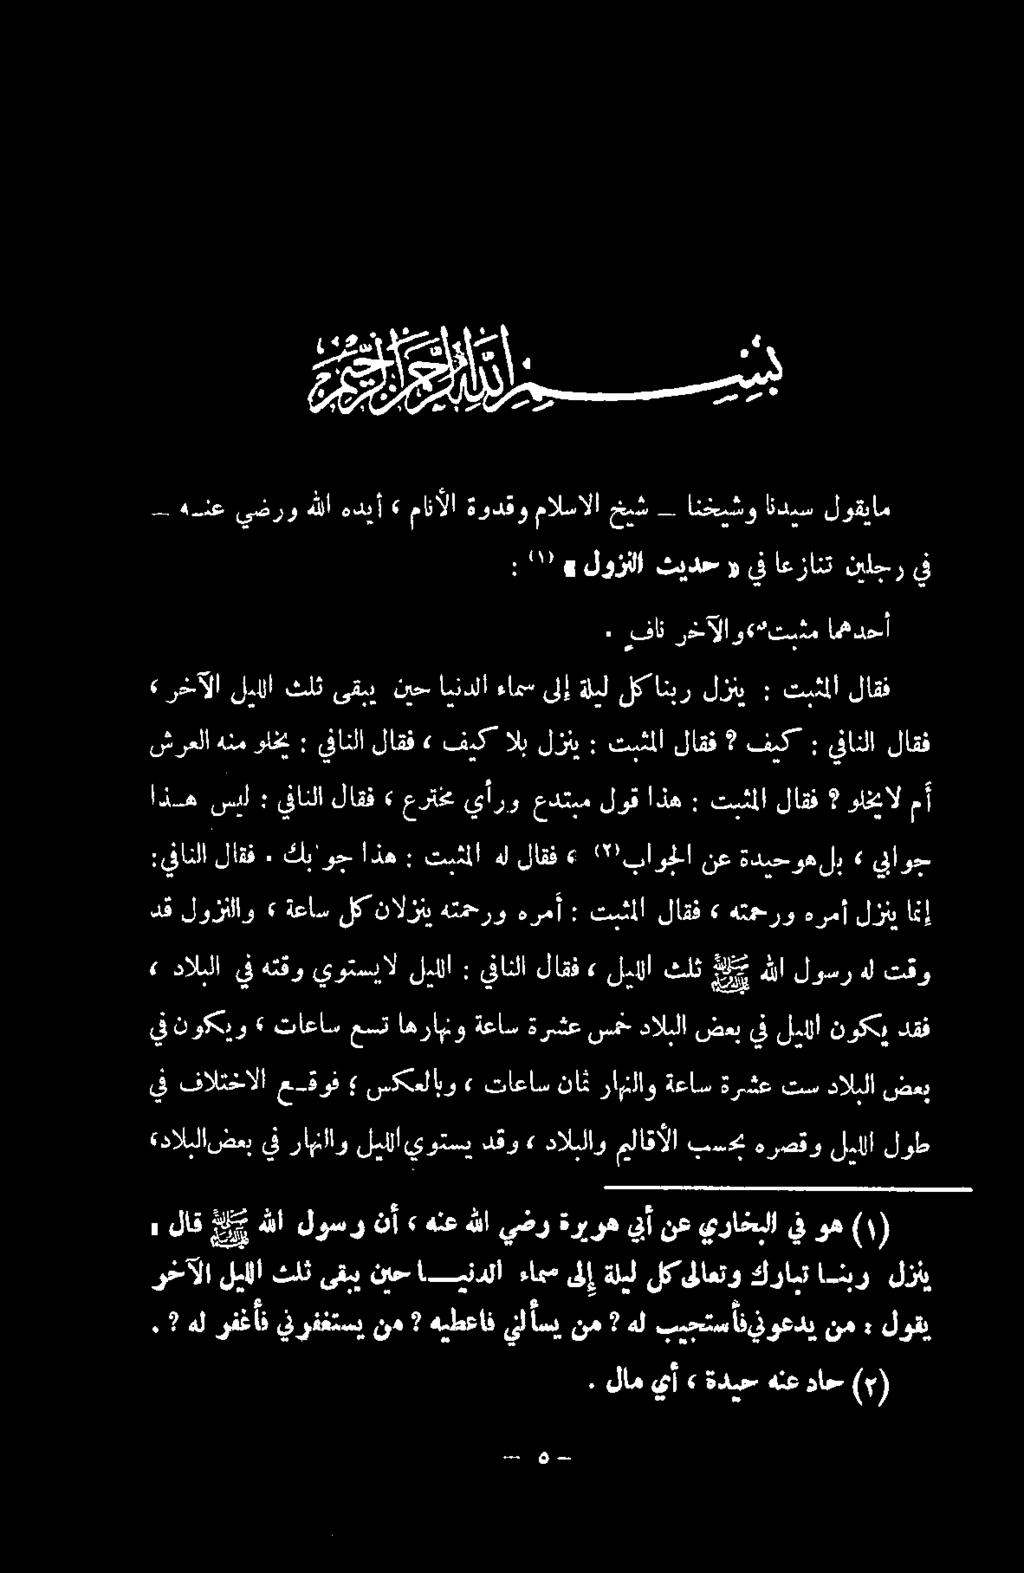 بسم الله الرحمن الرحيم
مايقول سيدنا وشيخنا _ شيخ الاسلام وقدوة الأنام ، أيده الله ورضي عنـه _
في رجلين تنازعا في « حديث النزول » (١) :
أحدهما مثبت ، والآخر نافٍ .
فقال المثبت : ينزل ربنا كل ليلة إلى سماء الدنيا حين يبقى ثلث الليل الآخر ،
فقال النافي : كيف ؟ فقال المثبت : ينزل بلا كيف ، فقال النافي : يخلو منه العرش
أم لا يخلو ؟ فقال المثبت : هذا قول مبتدع ورأي مخترع ، فقال النافي : ليس هـذا
جوابي ، بل هو حيدة عن الجواب (٢) ، فقال له المثبت : هذا جوابك . فقال النافي :
إنما ينزل أمره ورحمته ، فقال المثبت : أمره ورحمته ينزلان كل ساعة ، والنزول قد
وقت له رسول الله ﷺ ثلث الليل ، فقال النافي : الليل لا يستوي وقته في البلاد ،
فقد يكون الليل في بعض البلاد خمس عشرة ساعة ونهارها تسع ساعات ، ويكون في
بعض البلاد ست عشرة ساعة والنهار ثمان ساعات ، وبالعكس ؛ فوقـع الاختلاف في
طول الليل وقصره بحسب الأقاليم والبلاد ، وقد يستوي الليل والنهار في بعض البلاد ،
(١) هو في البخاري عن أبي هريرة رضي الله عنه ، أن رسول الله ﷺ قال «
ينزل ربـنا تبارك وتعالى كل ليلة إلى سماء الدنيـــا حين يبقى ثلث الليل الآخر
يقول : من يدعوني فأستجيب له ؟ من يسألني فاعطيه ؟ من يستغفرني فأغفر له ؟ .
(٢) حاد عنه حيدة ، أي مال .
— ٥ —